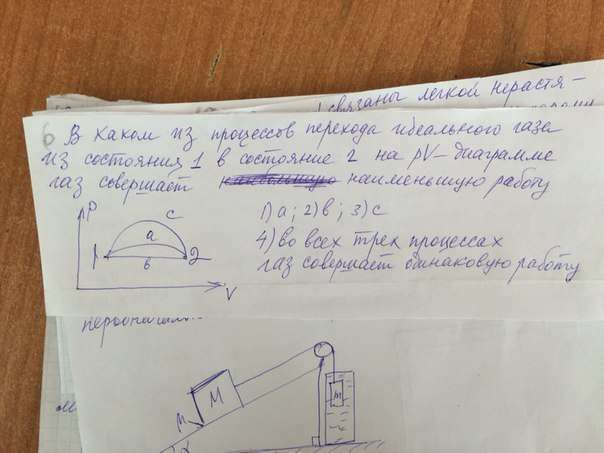 связаны легкой нерастя-
6 В каком из процессов перехода идеального газа
из состояния 1 в состояние 2 на pV-диаграмме
газ совершает наименьшую работу
P
c
a
1
2
в
V
1) a; 2) в; 3) c
4) во всех трех процессах
газ совершает одинаковую работу
M
m
α